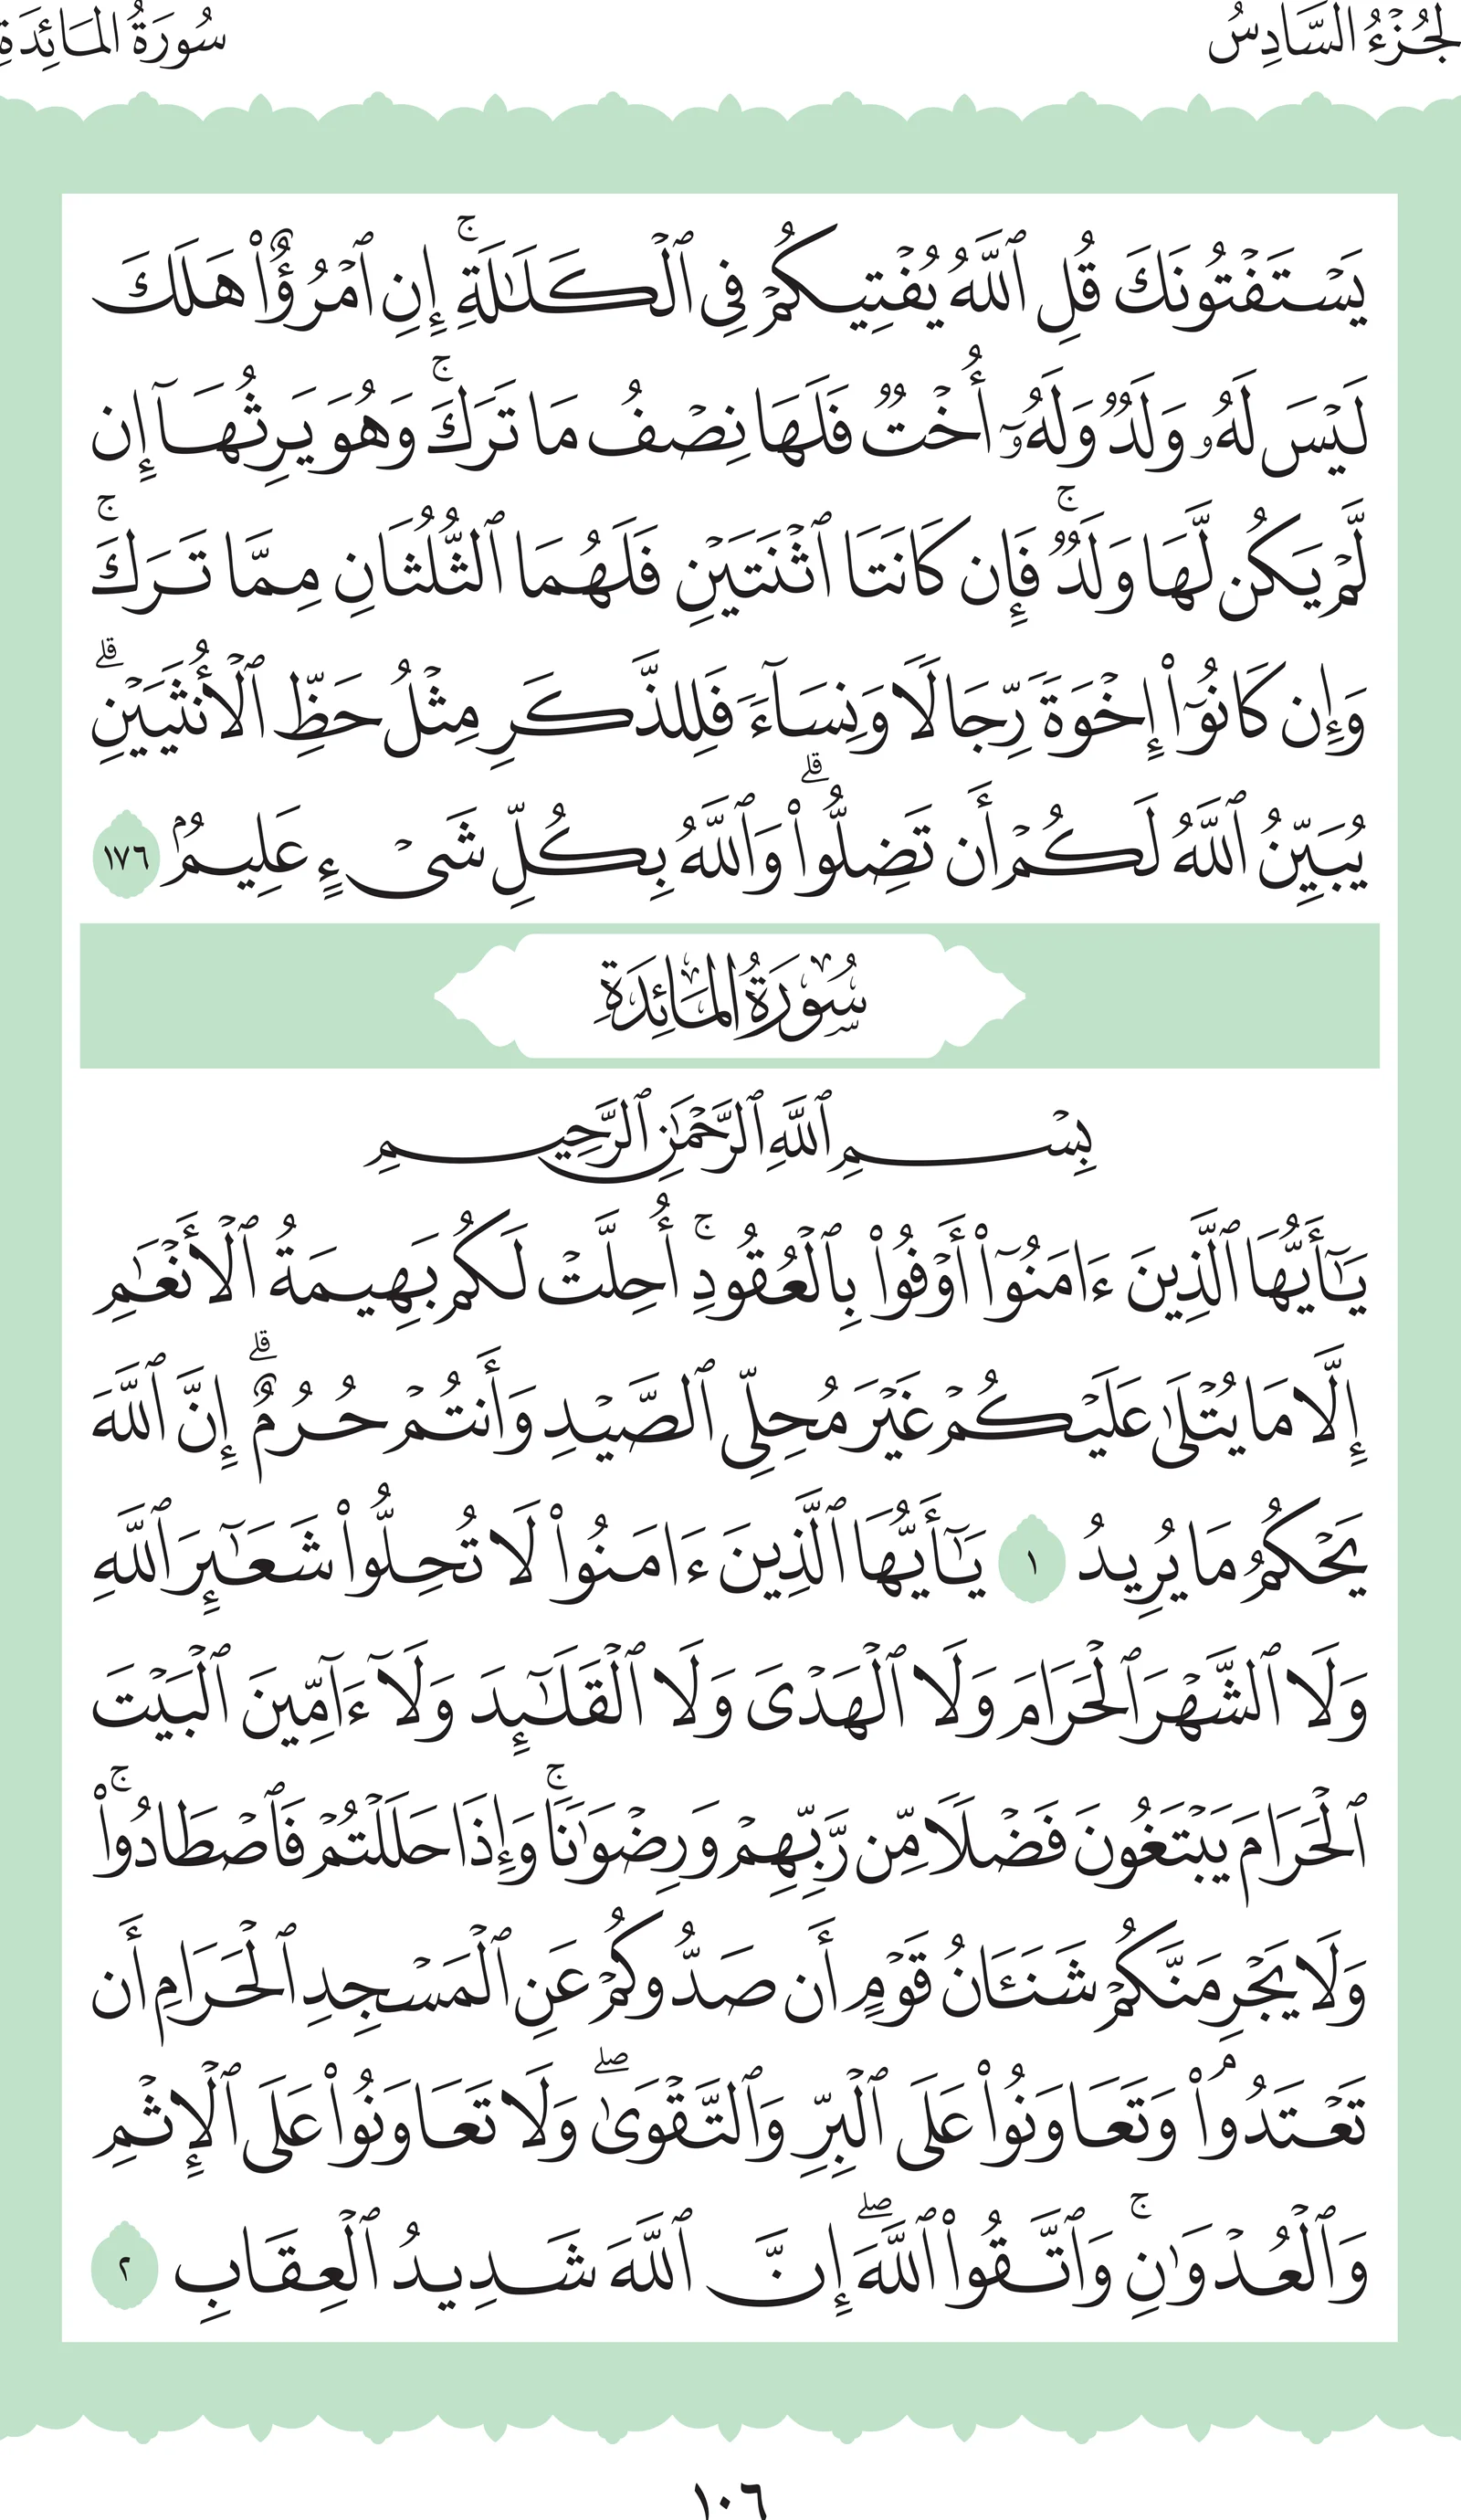 الجُزْءُ السَّادِسُ
سُورَةُ المَائِدَةِ
يَسْتَفْتُونَكَ قُلِ ٱللَّهُ يُفْتِيكُمْ فِى ٱلْكَلَٰلَةِ ۚ إِنِ ٱمْرُؤٌا۟ هَلَكَ
لَيْسَ لَهُۥ وَلَدٌ وَلَهُۥٓ أُخْتٌ فَلَهَا نِصْفُ مَا تَرَكَ ۚ وَهُوَ يَرِثُهَآ إِن
لَّمْ يَكُن لَّهَا وَلَدٌ ۚ فَإِن كَانَتَا ٱثْنَتَيْنِ فَلَهُمَا ٱلثُّلُثَانِ مِمَّا تَرَكَ ۚ
وَإِن كَانُوٓا۟ إِخْوَةً رِّجَالًا وَنِسَآءً فَلِلذَّكَرِ مِثْلُ حَظِّ ٱلْأُنثَيَيْنِ ۗ
يُبَيِّنُ ٱللَّهُ لَكُمْ أَن تَضِلُّوا۟ ۗ وَٱللَّهُ بِكُلِّ شَىْءٍ عَلِيمٌۢ ١٧٦
سُورَةُ المَائِدَةِ
بِسْمِ ٱللَّهِ ٱلرَّحْمَٰنِ ٱلرَّحِيمِ
يَٰٓأَيُّهَا ٱلَّذِينَ ءَامَنُوٓا۟ أَوْفُوا۟ بِٱلْعُقُودِ ۚ أُحِلَّتْ لَكُم بَهِيمَةُ ٱلْأَنْعَٰمِ
إِلَّا مَا يُتْلَىٰ عَلَيْكُمْ غَيْرَ مُحِلِّى ٱلصَّيْدِ وَأَنتُمْ حُرُمٌ ۗ إِنَّ ٱللَّهَ
يَحْكُمُ مَا يُرِيدُ ١ يَٰٓأَيُّهَا ٱلَّذِينَ ءَامَنُوا۟ لَا تُحِلُّوا۟ شَعَٰٓئِرَ ٱللَّهِ
وَلَا ٱلشَّهْرَ ٱلْحَرَامَ وَلَا ٱلْهَدْىَ وَلَا ٱلْقَلَٰٓئِدَ وَلَآ ءَآمِّينَ ٱلْبَيْتَ
ٱلْحَرَامَ يَبْتَغُونَ فَضْلًا مِّن رَّبِّهِمْ وَرِضْوَٰنًا ۚ وَإِذَا حَلَلْتُمْ فَٱصْطَادُوا۟ ۚ
وَلَا يَجْرِمَنَّكُمْ شَنَـَٔانُ قَوْمٍ أَن صَدُّوكُمْ عَنِ ٱلْمَسْجِدِ ٱلْحَرَامِ أَن
تَعْتَدُوا۟ ۘ وَتَعَاوَنُوا۟ عَلَى ٱلْبِرِّ وَٱلتَّقْوَىٰ ۖ وَلَا تَعَاوَنُوا۟ عَلَى ٱلْإِثْمِ
وَٱلْعُدْوَٰنِ ۚ وَٱتَّقُوا۟ ٱللَّهَ ۖ إِنَّ ٱللَّهَ شَدِيدُ ٱلْعِقَابِ ٢
١٠٦